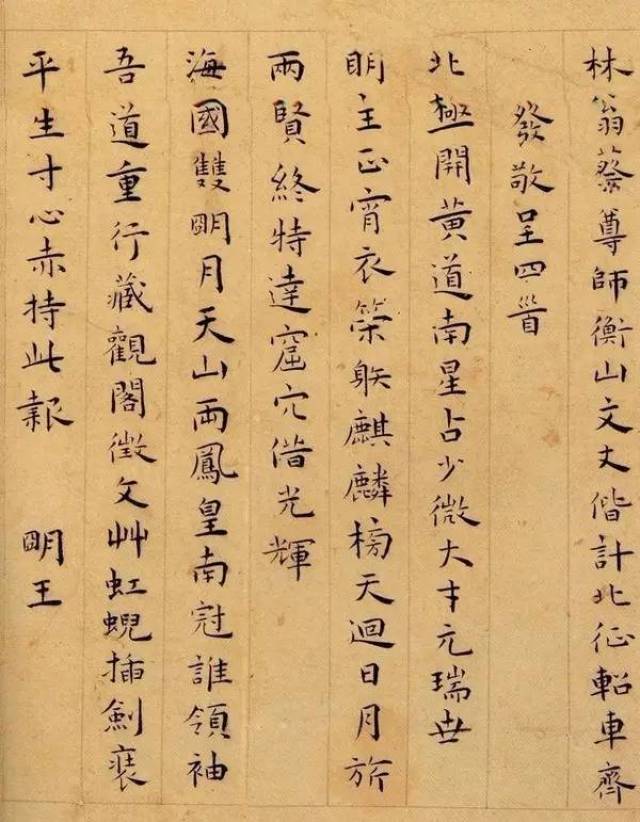 林翁蔡尊師衡山文丈偕計北征軺車齊
發敬呈四首
北極開黃道南星占少微大才元瑞世
明主正宵衣榮躿麒麟榜天迴日月旂
兩賢終特達窟穴借光輝
海國雙明月天山兩鳳皇南冠誰領袖
吾道重行藏觀閣徵文艸虹蜺插劍裝
平生寸心赤持此報 明王